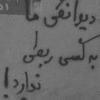 دیوانگی ما
به کسی ربطی
ندارد!